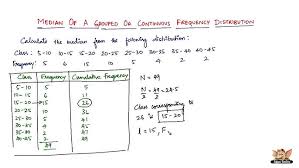 MEDIAN OF A GROUPED OR CONTINUOUS FREQUENCY DISTRIBUTION
Calculate the median from the following distribution:
Class: 5-10 10-15 15-20 20-25 25-30 30-35 35-40 40-45
Frequency: 5 6 15 10 5 4 2 2
Class Frequency Cumulative Frequency
5-10 5 5
10-15 6 11
15-20 15 26
20-25 10 36
25-30 5 41
30-35 4 45
35-40 2 47
40-45 2 49
49
N = 49
N/2 = 49/2 = 24.5
Class corresponding to
26 is 15-20
l = 15, F